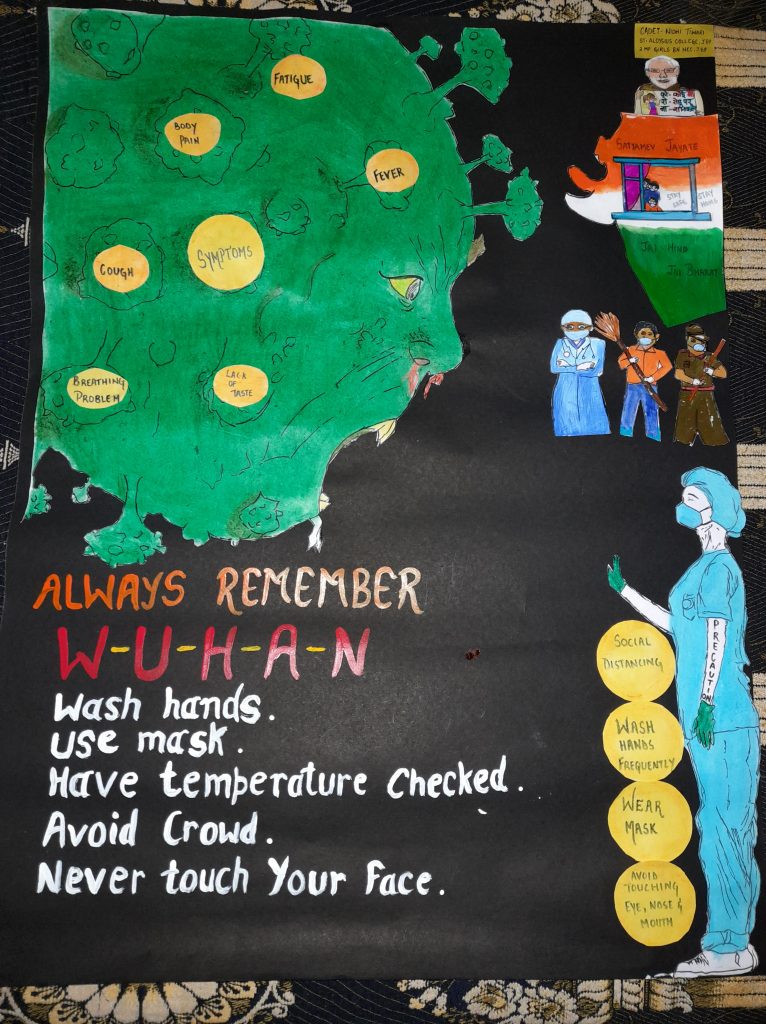 CADET- NIDHI TIWARI
ST. ALOYSIUS COLLEGE, JBP
2 MP GIRLS BN NCC, JBP
SATYAMEV JAYATE
STAY SAFE
STAY HOME
JAI HIND
JAI BHARAT
FATIGUE
BODY PAIN
FEVER
SYMPTOMS
COUGH
BREATHING PROBLEM
LACK OF TASTE
ALWAYS REMEMBER
W-U-H-A-N
Wash hands.
Use mask.
Have temperature Checked.
Avoid Crowd.
Never touch Your Face.
PRECAUTION
SOCIAL
DISTANCING
WASH
HANDS
FREQUENTLY
WEAR
MASK
AVOID
TOUCHING
EYE, NOSE &
MOUTH